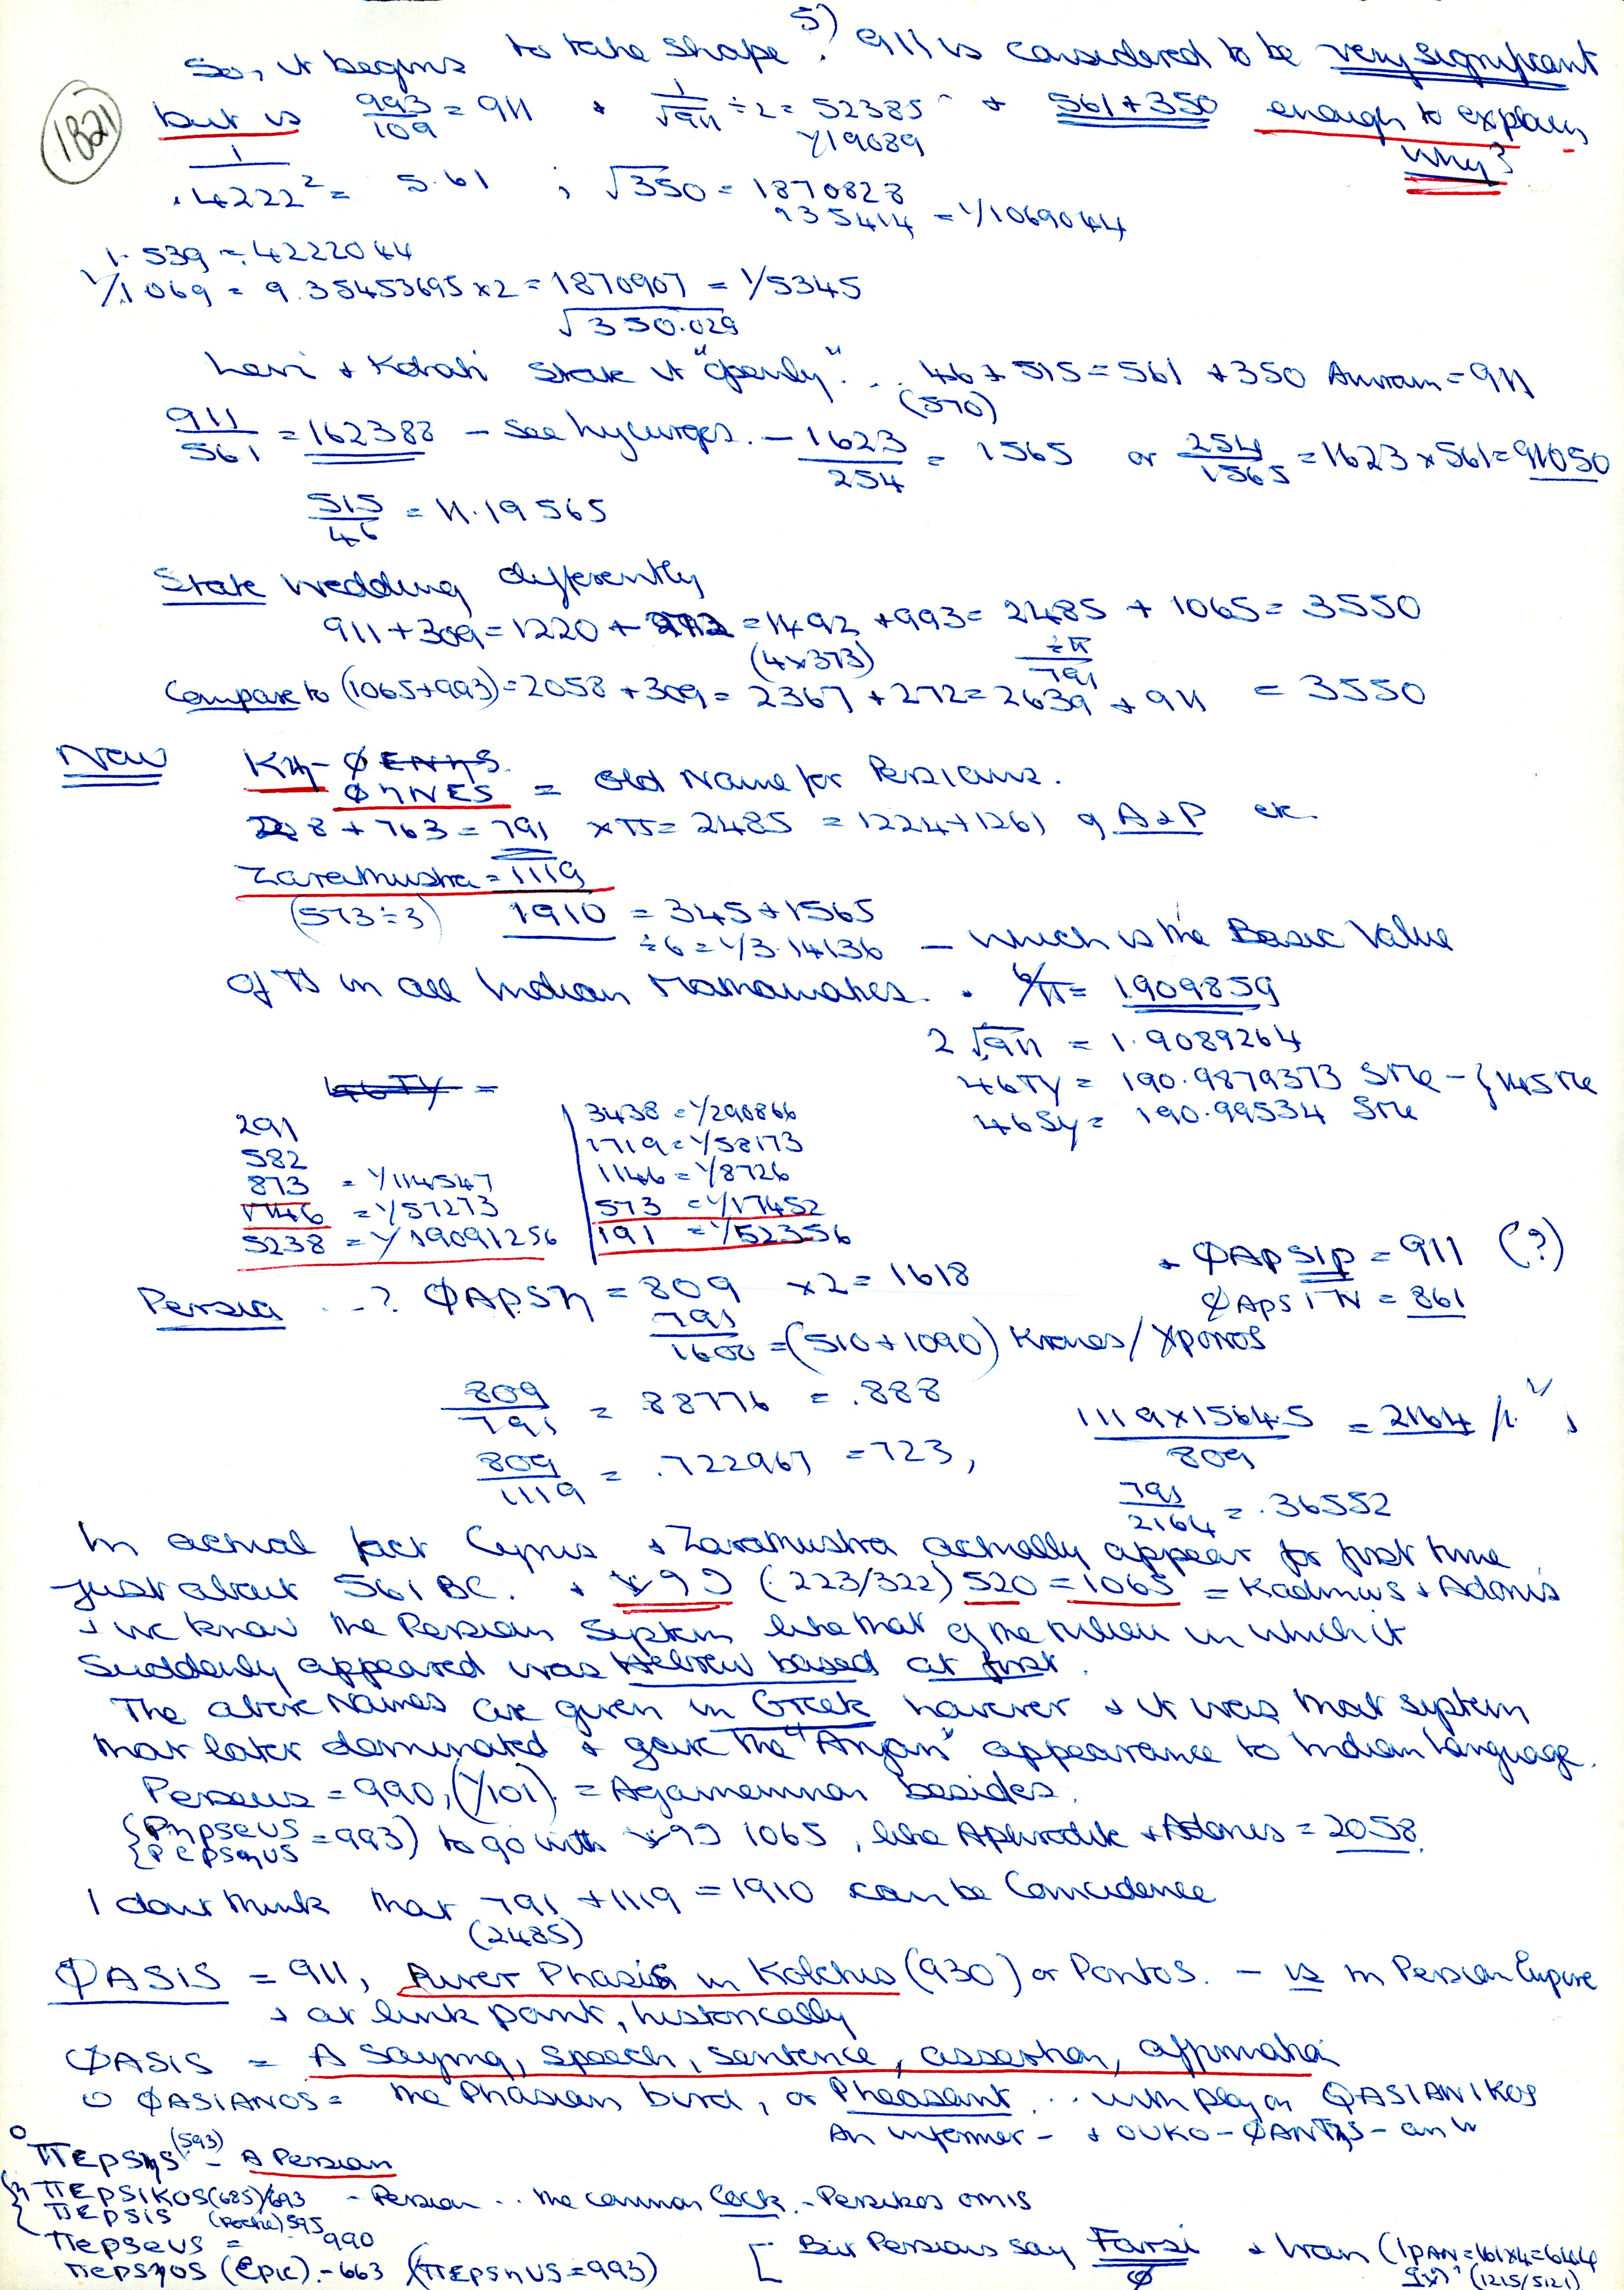 5)
So, it begins to take shape? 911 is considered to be very significant
1B21
but is 993/109 = 911 + 1/√911 ÷ 2 = 52385 + 561 + 350 enough to explain
1/19089
Why?
1/.4222² = 5.61 ; √350 = 1870828
935414 = 1/1069044
1.539 = .4222044
1/1069 = 9.35453695 x 2 = 1870907 = 1/5345
√350.029
Levi + Korah state it "openly" .. 46 + 515 = 561 + 350 Amram = 911
(570)
911/561 = 162388 – see Lycurges. – 1623/254 = 1565 or 254/1565 = 1623 x 561 = 91050
515/46 = 11.19565
State Wedding differently
911 + 309 = 1220 + 272 = 1492 + 993 = 2485 + 1065 = 3550
(4x373) ÷π
791
Compare to (1065+993) = 2058 + 309 = 2367 + 272 = 2639 + 911 = 3550
New Kη- ΦENηS
ΦηNES = Old Name for Persians.
28 + 763 = 791 x π = 2485 = 1224 + 1261 of A & P etc.
Zarathustra = 1119
(573÷3) 1910 = 345 + 1565
÷6 = 1/3.14136 – which is the Basic Value
of π in all Indian Mathematics. 6/π = 1909859
2√911 = 1.9089264
46TY = 190.9879373
46Sy = 190.99534
46TY =
291
582
873 = 1/114547
1746 = 1/57273
5238 = 1/19091256
3438 = 1/290866
1719 = 1/58173
1146 = 1/8726
573 = 1/17452
191 = 1/52356
Persia ..? ΦAPSη = 809 x 2 = 1618
+ ΦApSip = 911 (?)
ΦApSIN = 861
791
1600 = (510 + 1090) Kronos / Xponos
809/791 = .88776 = .888
1119 x 1564.5/809 = 2164
809/1119 = .722967 = 723,
791/2164 = .36552
In actual fact Cyrus + Zarathustra actually appear for first time
just about 561 BC. + (.223/322) 520 = 1065 = Kadmus + Adonis
+ we know the Persian System like that of the milieu in which it
suddenly appeared was Hebrew based at first.
The above Names are given in Greek however + it was that system
that later dominated + gave the "Aryan" appearance to Indian Language.
Perseus = 990, (1/101) = Agamemnon besides.
{PηpSeUS
{PepSηUS = 993) to go with 1065, like Aphrodite + Adonis = 2058.
I dont think that 791 + 1119 = 1910 can be Coincidence
(2485)
ΦASIS = 911, River Phasis in Kolchis (930) or Pontos. – is in Persian Empire
+ at link point, historically
ΦASIS = A Saying, speech, sentence, assertion, affirmation
O ΦASIANOS = the Phasian bird, or Pheasant .. with play on ΦASIANIKOS
An informer – + OUKO-ΦANTηS – an "
O ΠEpSηS (593) – A Persian
ΠEpSIKOS (685)/693 – Persian .. the common Cock. – Persikos ornis
ΠEpSIS 595
ΠepSeUS = 990
ΠepSηOS (Epic) – 663 (ΠEpSηUS = 993)
[ But Persians say Farsi + Iran (IpAN = 161x4 = 644
Φ (1215/5121)